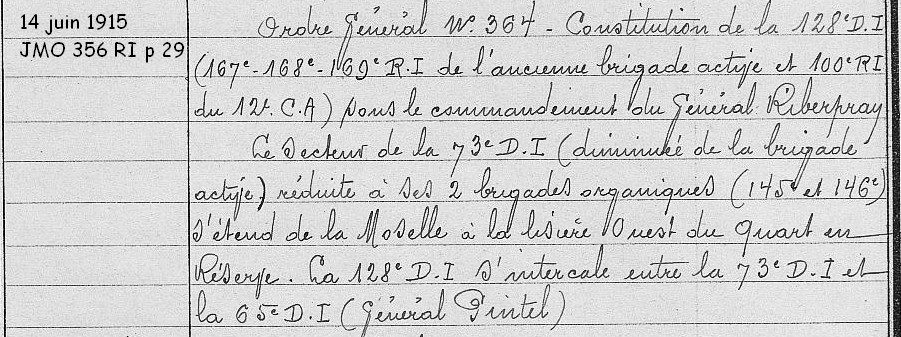 14 juin 1915
JMO 356 RI p 29
Ordre Général N°. 364 - Constitution de la 128e D.I
(167e-168e-169e R.I de l'ancienne brigade active et 100e RI
du 12e. C.A) sous le commandement du Général Riberpray
Le Secteur de la 73e D.I (diminuée de la brigade
active) réduite à ses 2 brigades organiques (145e et 146e)
s'étend de la Moselle à la lisière Ouest du Quart en
Réserve. La 128e D.I s'intercale entre la 73e D.I et
la 65e D.I (Général Pintel)